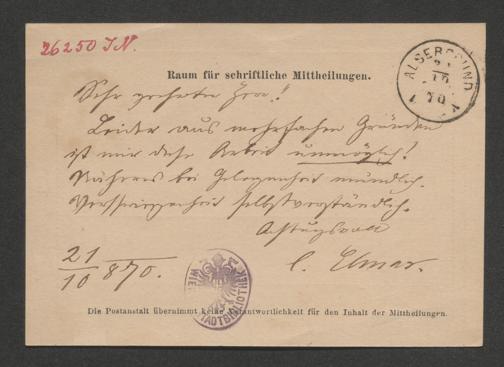 26250 J.N.
Raum für schriftliche Mittheilungen.
ALSERGRUND
Sehr geehrter Herr!
Leider aus mehrfachen Gründen
ist mir diese Arbeit unmöglich!
Näheres bei Gelegenheit mündlich.
Verschwiegenheit selbstverständlich.
Achtungsvoll
21/10 870.
C. Elmar.
WIENER STADTBIBLIOTHEK
Die Postanstalt übernimmt keine Verantwortlichkeit für den Inhalt der Mittheilungen.